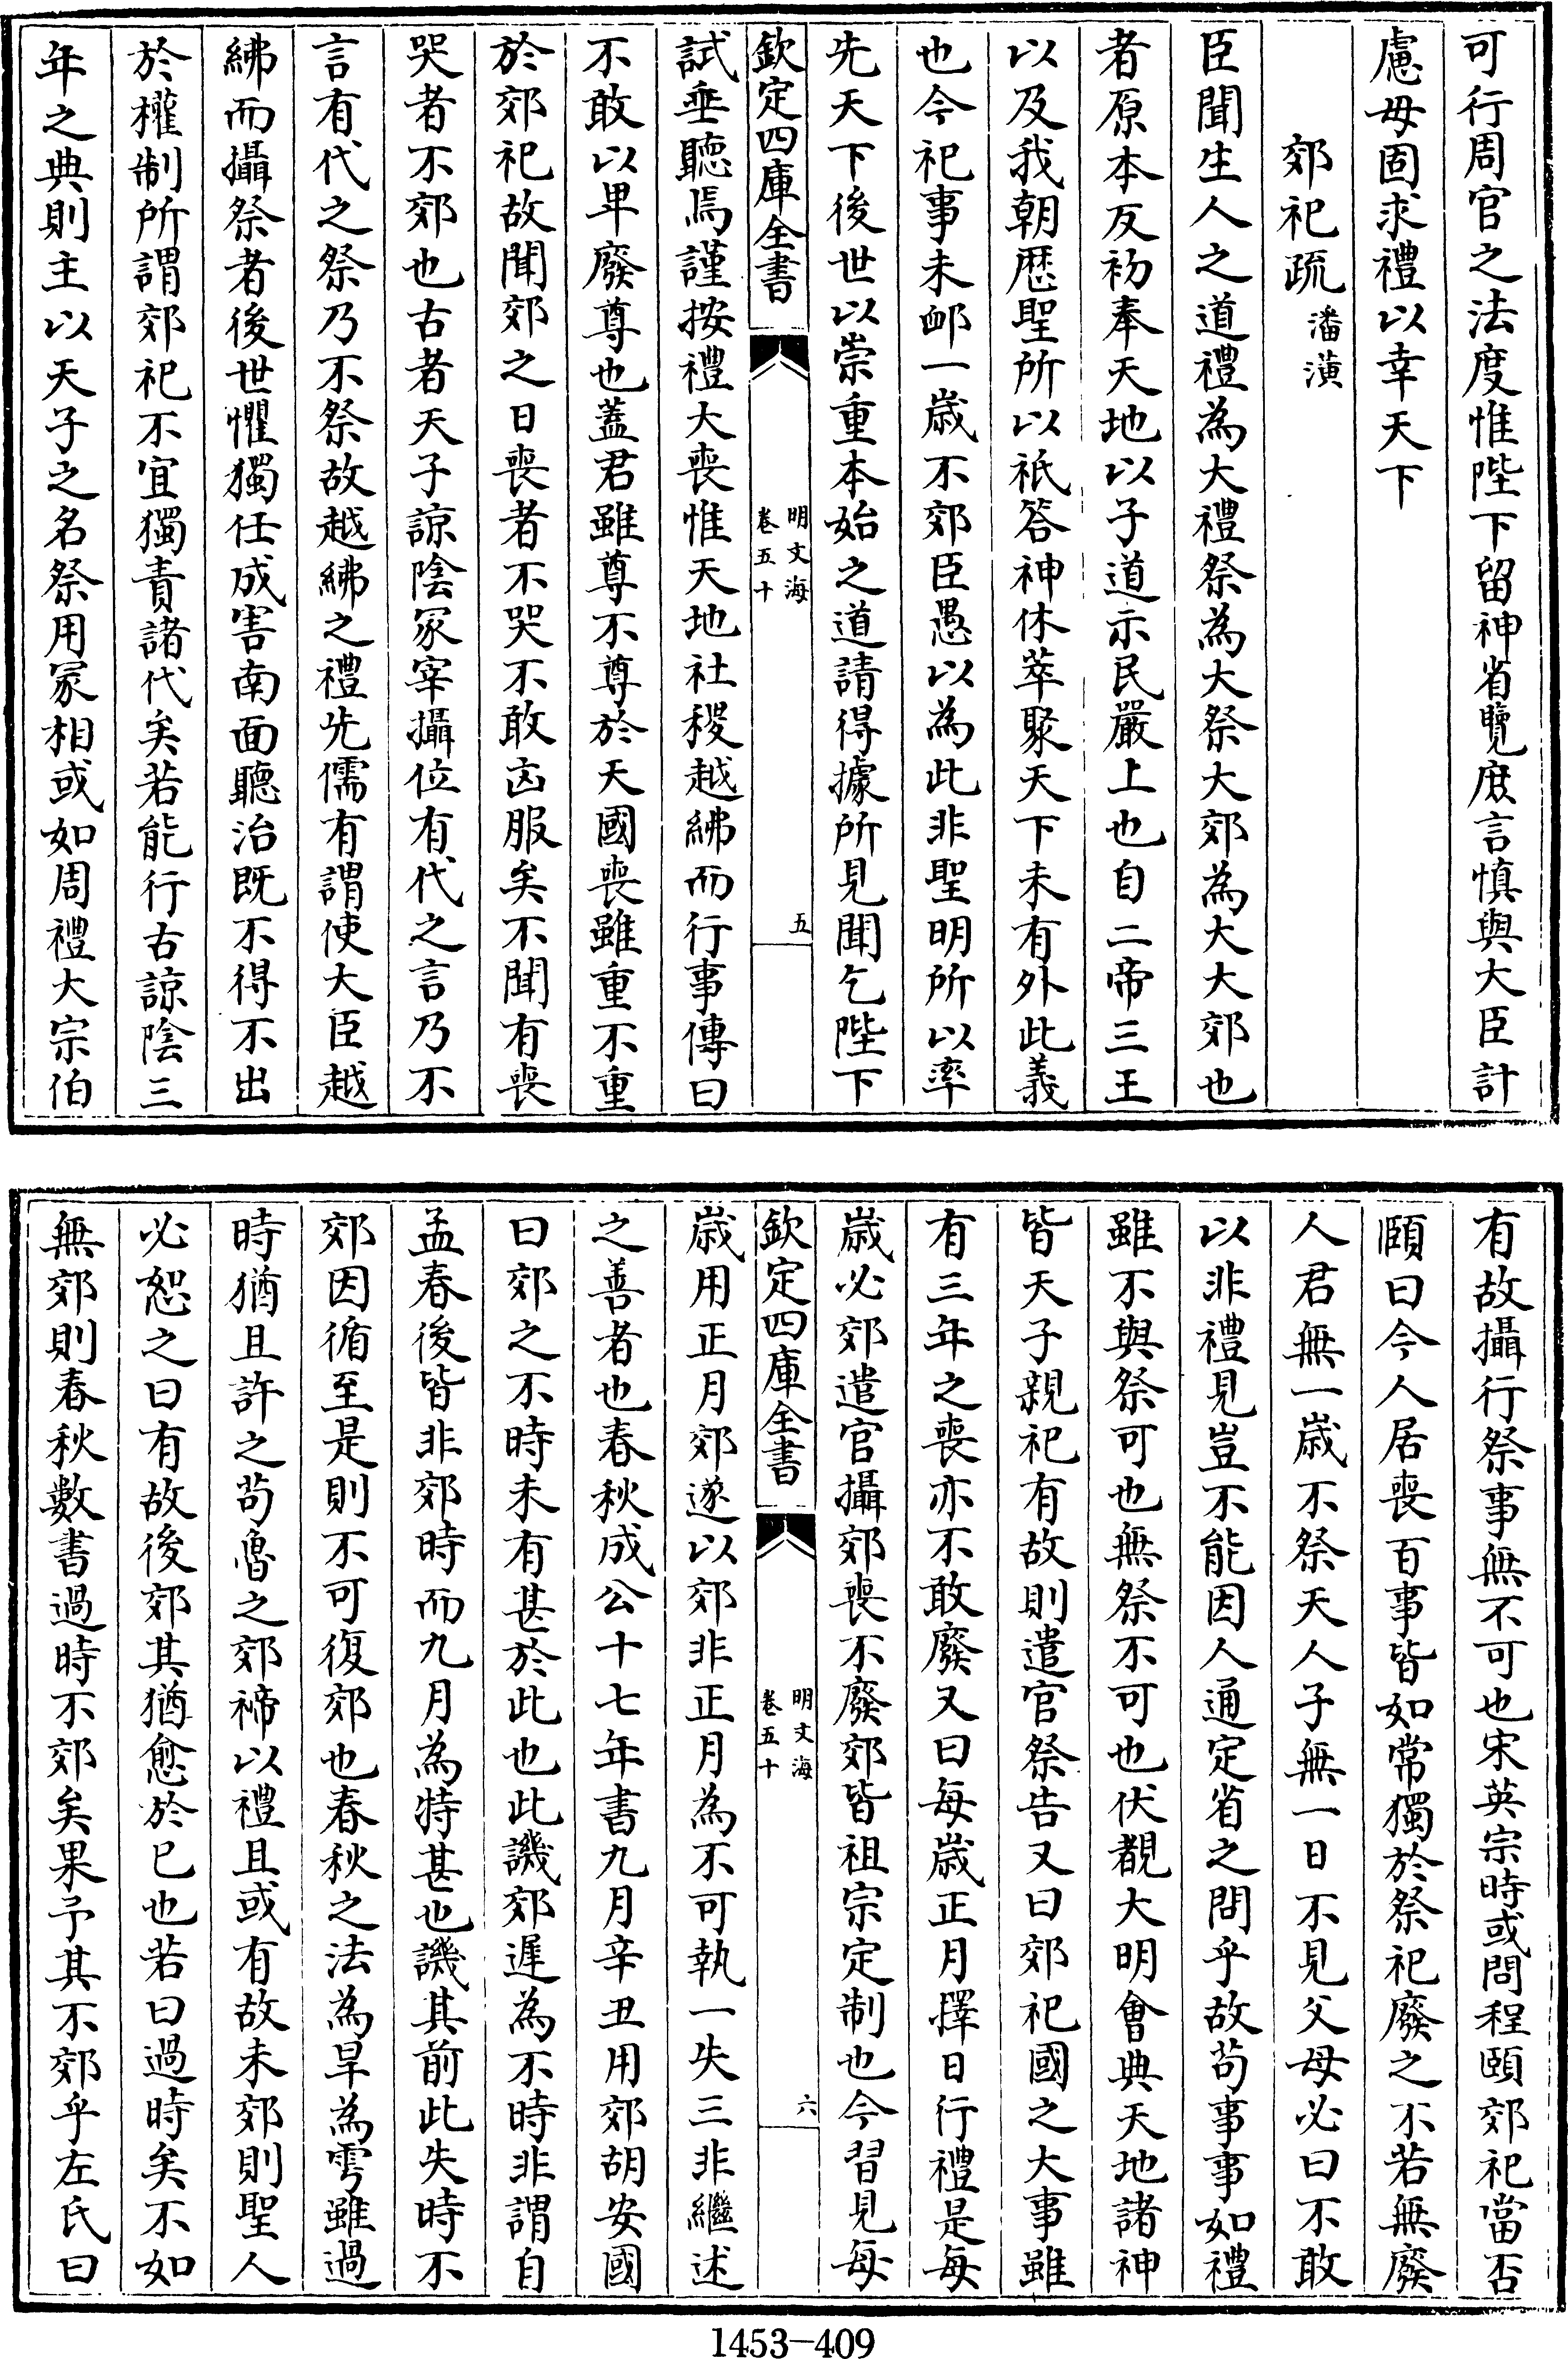 可行周官之法度惟陛下留神省覽庶言慎與大臣計
慮毋固求禮以幸天下
郊祀疏潘潢
臣聞生人之道禮為大禮祭為大祭大郊為大大郊也
者原本反初奉天地以子道示民嚴上也自二帝三王
以及我朝歴聖所以祇答神休萃聚天下未有外此義
也今祀事未卹一歳不郊臣愚以為此非聖明所以率
先天下後世以崇重本始之道請得據所見聞乞陛下
欽定四庫全書
明文海
卷五十
五
試垂聽焉謹按禮大喪惟天地社稷越紼而行事傳曰
不敢以卑廢尊也蓋君雖尊不尊於天國喪雖重不重
於郊祀故聞郊之日喪者不哭不敢凶服矣不聞有喪
哭者不郊也古者天子諒陰冢宰攝位有代之言乃不
言有代之祭乃不祭故越紼之禮先儒有謂使大臣越
紼而攝祭者後世懼獨任成害南面聽治既不得不出
於權制所謂郊祀不宜獨責諸代矣若能行古諒陰三
年之典則主以天子之名祭用冢相或如周禮大宗伯
有故攝行祭事無不可也宋英宗時或問程頤郊祀當否
頤曰今人居喪百事皆如常獨於祭祀廢之不若無廢
人君無一歳不祭天人子無一日不見父母必曰不敢
以非禮見豈不能因人通定省之問乎故苟事事如禮
雖不與祭可也無祭不可也伏覩大明會典天地諸神
皆天子親祀有故則遣官祭告又曰郊祀國之大事雖
有三年之喪亦不敢廢又曰每歳正月擇日行禮是每
歳必郊遣官攝郊喪不廢郊皆祖宗定制也今習見每
欽定四庫全書
明文海
卷五十
六
歳用正月郊遂以郊非正月為不可執一失三非繼述
之善者也春秋成公十七年書九月辛丑用郊胡安國
曰郊之不時未有甚於此也此譏郊遲為不時非謂自
孟春後皆非郊時而九月為特甚也譏其前此失時不
郊因循至是則不可復郊也春秋之法為旱為雩雖過
時猶且許之茍魯之郊禘以禮且或有故未郊則聖人
必恕之曰有故後郊其猶愈於已也若曰過時矣不如
無郊則春秋數書過時不郊矣果予其不郊乎左氏曰
1453-409